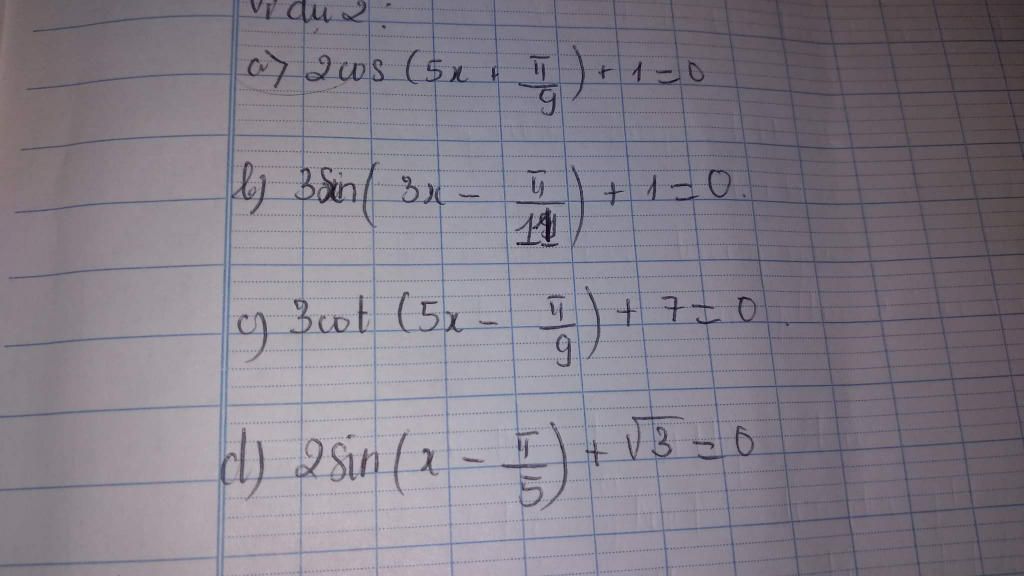 Ví dụ 2:
a) 2cos (5x + π/9) + 1 = 0
b) 3sin( 3x - π/11) + 1 = 0.
c) 3cot (5x - π/9) + 7 = 0.
d) 2sin (x - π/5) + √3 = 0